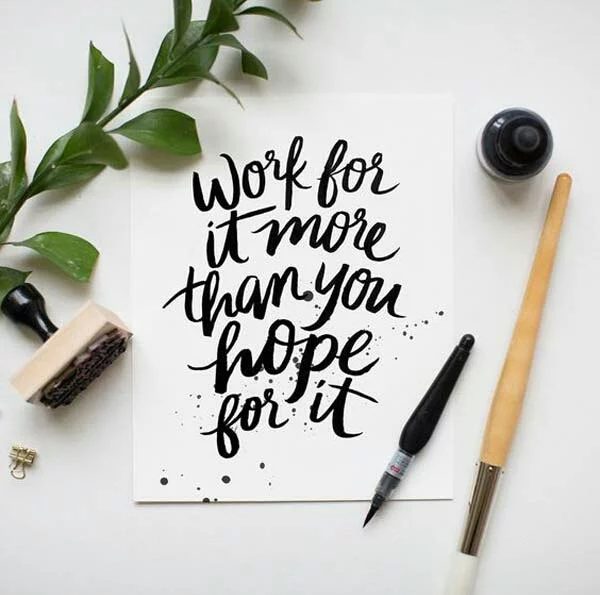 Work for
it more
than you
hope
for it